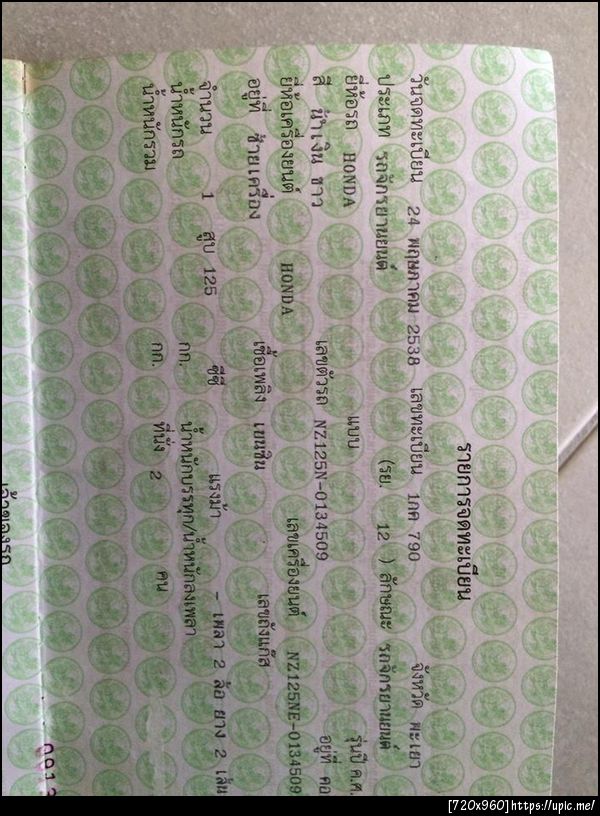 รายการจดทะเบียน
วันจดทะเบียน 24 พฤษภาคม 2538 เลขทะเบียน 1กค 790 จังหวัด พะเยา
ประเภท รถจักรยานยนต์ (รย. 12 ) ลักษณะ รถจักรยานยนต์
ยี่ห้อรถ HONDA แบบ รุ่นปี ค.ศ.
สี น้ำเงิน ขาว เลขตัวรถ NZ125N-0134509 อยู่ที่ คอ
ยี่ห้อเครื่องยนต์ HONDA เลขเครื่องยนต์ NZ125NE-0134509
อยู่ที่ ซ้ายเครื่อง เชื้อเพลิง เบนซิน เลขถังแก๊ส
จำนวน 1 สูบ 125 ซีซี แรงม้า - เพลา 2 ล้อ ยาง 2 เส้น
น้ำหนักรถ กก. น้ำหนักบรรทุก/น้ำหนักลงเพลา
น้ำหนักรวม กก. ที่นั่ง 2 คน
เจ้าของรถ
[720x960]https://upic.me/